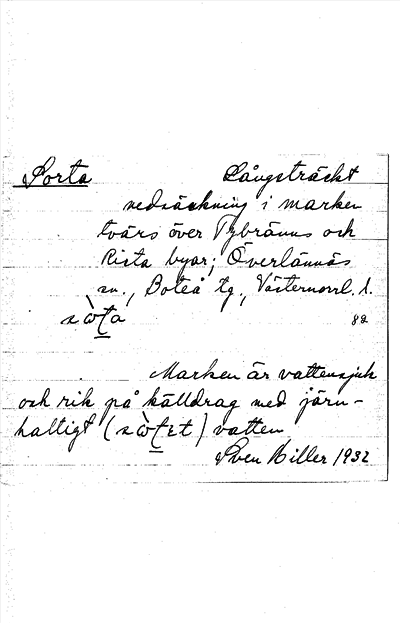 Sorta Långsträckt
nedsäckning i marken
tvärs över Tybränns och
Rista byar; Överlännäs
sn., Boteå tg., Västernorrl. l.
82
Marken är vattensjuk
och rik på källdrag med järn-
haltigt ( ) vatten
Sven Hiller 1932